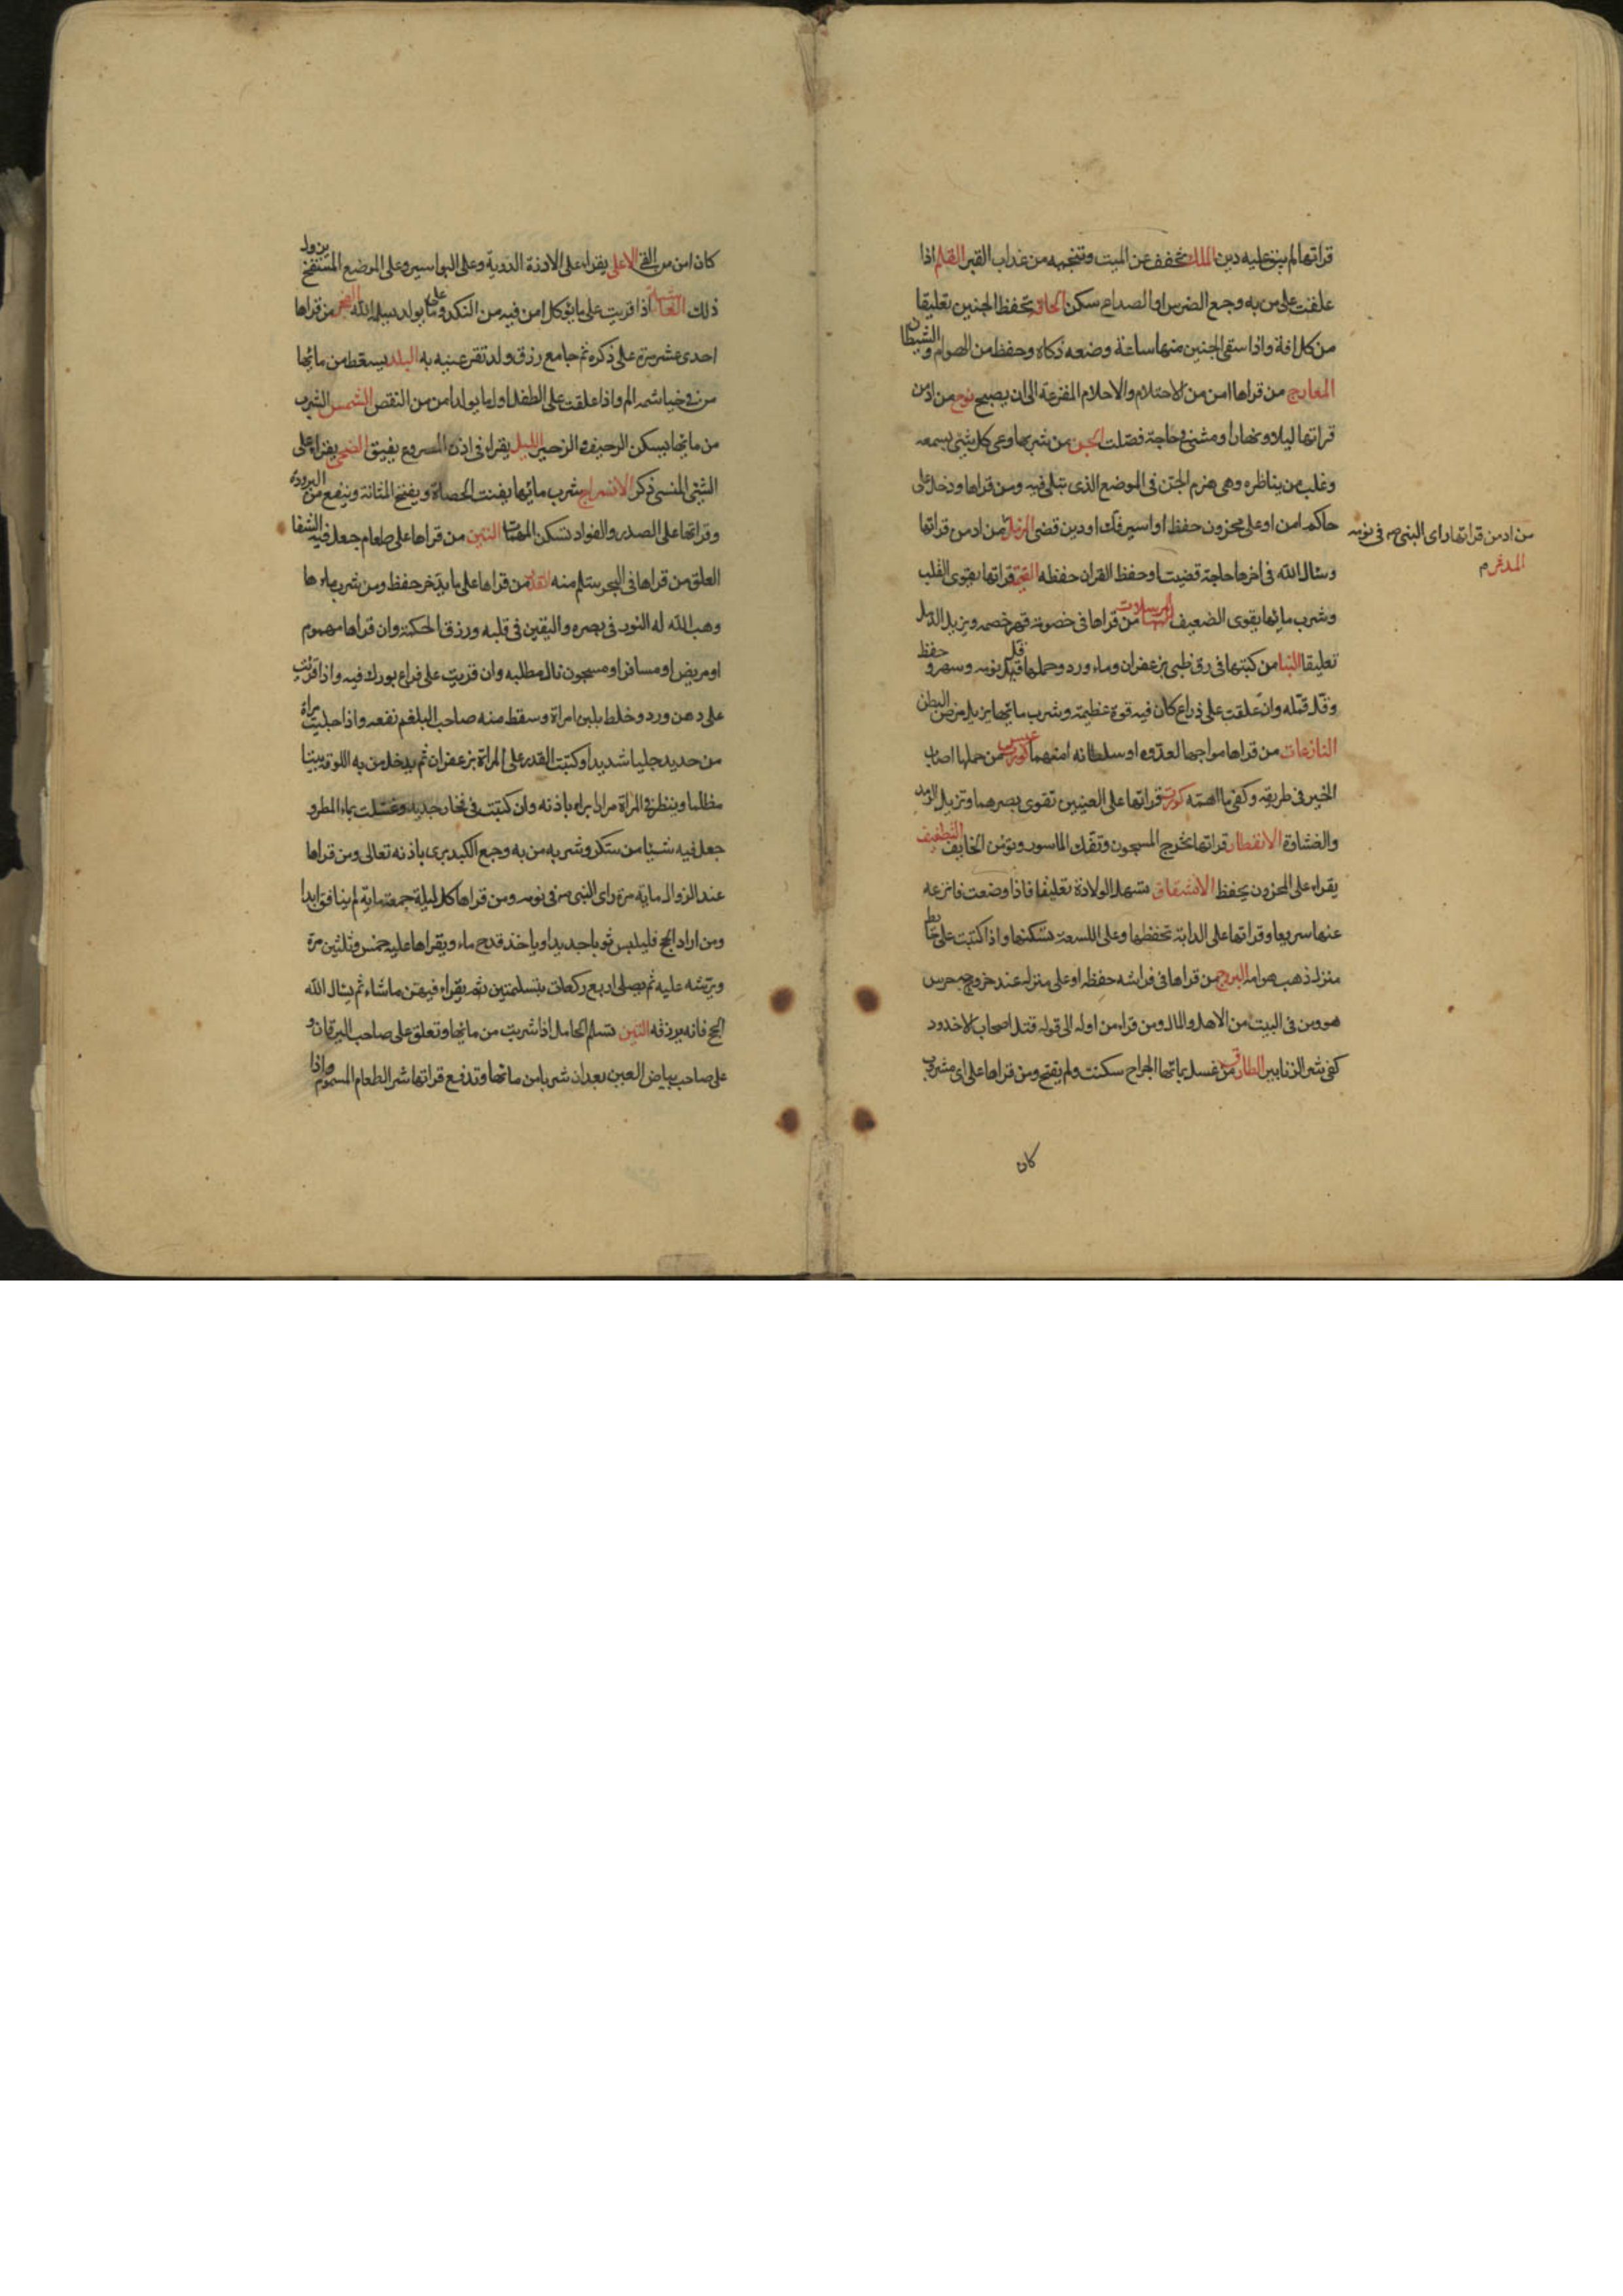 قراتها لم يبق عليه دين الملك تخفف عن الميت وتنجيه من عذاب القبر القلم اذا
علقت على من به وجع الضرس او الصداع سكن الحاقة تحفظ الجنين تعليقا
من كل افة واذا سقى الجنين منها ساعة وضعه ذكاه وحفظ من الهوام والشيطان
المعارج من قراها امن من الاحتلام والاحلام المفزعة الى ان يصبح نوح من ادمن
قراتها ليلا ونهارا ومشى فى حاجة قضيت الجن من شربها وعى كل شئ يسمعه
وغلب من يناظره وهى تهزم الجن فى الموضع الذى تتلى فيه ومن قراها ودخل على
حاكم امن او على مخزون حفظ او اسير فك او دين قضى المزمل من ادمن قراتها
من ادمن قراتها راى النبى ص فى نومه
المدثر م
وسئال الله فى اخرها حاجة قضيت او حفظ القران حفظه القيمة قراتها يقوى القلب
وشرب مائها يقوى الضعيف المرسلات من قراها فى خصومة قهر خصمه ويزيل الدمل
تعليقا النبا من كتبها فى رق ظبى بزعفران وماء ورد وحملها قل نومه وسهر وحفظ
وقل قمله وان علقت على ذراع كان فيه قوة عظيمة وشرب مائها يزيل مرض البطن
النازعات من قراها مواجها لعدوه او سلطانه امنهما عبس من حملها اصاب
الخير فى طريقه وكفى ما اهمه كورت قراتها على العينين تقوى بصرهما وتزيل الرمد
والغشاوة الانفطار قراتها تخرج المسجون وتفك الماسور وتؤمن الخايف التطفيف
يقراء على المخزون يحفظ الانشقاق تسهل الولادة تعليقا فاذا وضعت فانزعه
عنها سريعا وقراتها على الدابة تحفظها وعلى اللسعة تسكنها واذا كتبت على حايط
منزل ذهب هوامه البروج من قراها فى فراشه حفظ او على منزله عند خروجه حرس
هو ومن فى البيت من الاهل والمال ومن قراء من اوله الى قوله قتل اصحاب الاخدود
كفى شر الزنابير الطارق من غسل بمائها الجراح سكنت ولم يقح ومن قراها على اى مشروب
كان
كان امن من القئ الاعلى يقراء على الاذنة الدوية وعلى البواسير وعلى الموضع المنتفخ يزول
ذلك الغاشية اذا قريت على ما يؤكل امن فيه من النكد وعلى ما يولد سلمه الله الفجر من قراها
احدى عشر مرة على ذكره ثم جامع رزق ولد تقر عينيه به البلد يسقط من مائها
من فى خياشمه الم واذا علقت على الطفل اول ما يولد امن من النقص الشمس الشرب
من مائها يسكن الرجيف والزحير الليل يقراء فى اذن المصروع يفيق الضحى يقراء على
الشئ المنسى ذكر الانشراح شرب مائها يفتت الحصاة ويفتح المثانة وينفع من البرودة
وقراتها على الصدر والفواد تسكن التين من قراها على طعام جعل فيه الشفا
العلق من قراها فى البحر سلم منه القدر من قراها على ما يدخر حفظ ومن شرب ماءها
وهب الله له النور فى بصره واليقين فى قلبه ورزق الحكمة وان قراها مهموم
او مريض او مسافر او مسجون نال مطلبه وان قريت على فراع بورك فيه واذا قرئت
على دهن ورد وخلط بلبن امراة وسقط منه صاحب البلغم نفعه واذا جليت مراة
من حديد جليا شديدا وكتبت القدر على المراة بزعفران ثم يدخل من به اللوقة بيتا
مظلما وينظر فى المراة مرارا براء باذنه وان كتبت فى فخار جديد وغسلت بماء المطر و
جعل فيه شيئا من سكر وشربه من به وجع الكبد برى باذنه تعالى ومن قراها
عند الزوال ماية مرة راى النبى ص فى نومه ومن قراها كل ليلة جمعة ماية لم ينافق ابدا
ومن اراد الحج فليلبس ثوبا جديدا وياخذ قدح ماء ويقراها عليه خمس وثلثين مرة
ويرشه عليه ثم يصلى اربع ركعات بتسلمتين ثم يقراء فيهن ما شاء ثم يسال الله
الحج فانه يرزقه التين تسلم الحامل اذا شربت من مائها وتعلق على صاحب اليرقان و
على صاحب بياض العين بعد ان شربا من مائها وتدفع قراتها شر الطعام المسموم واذا